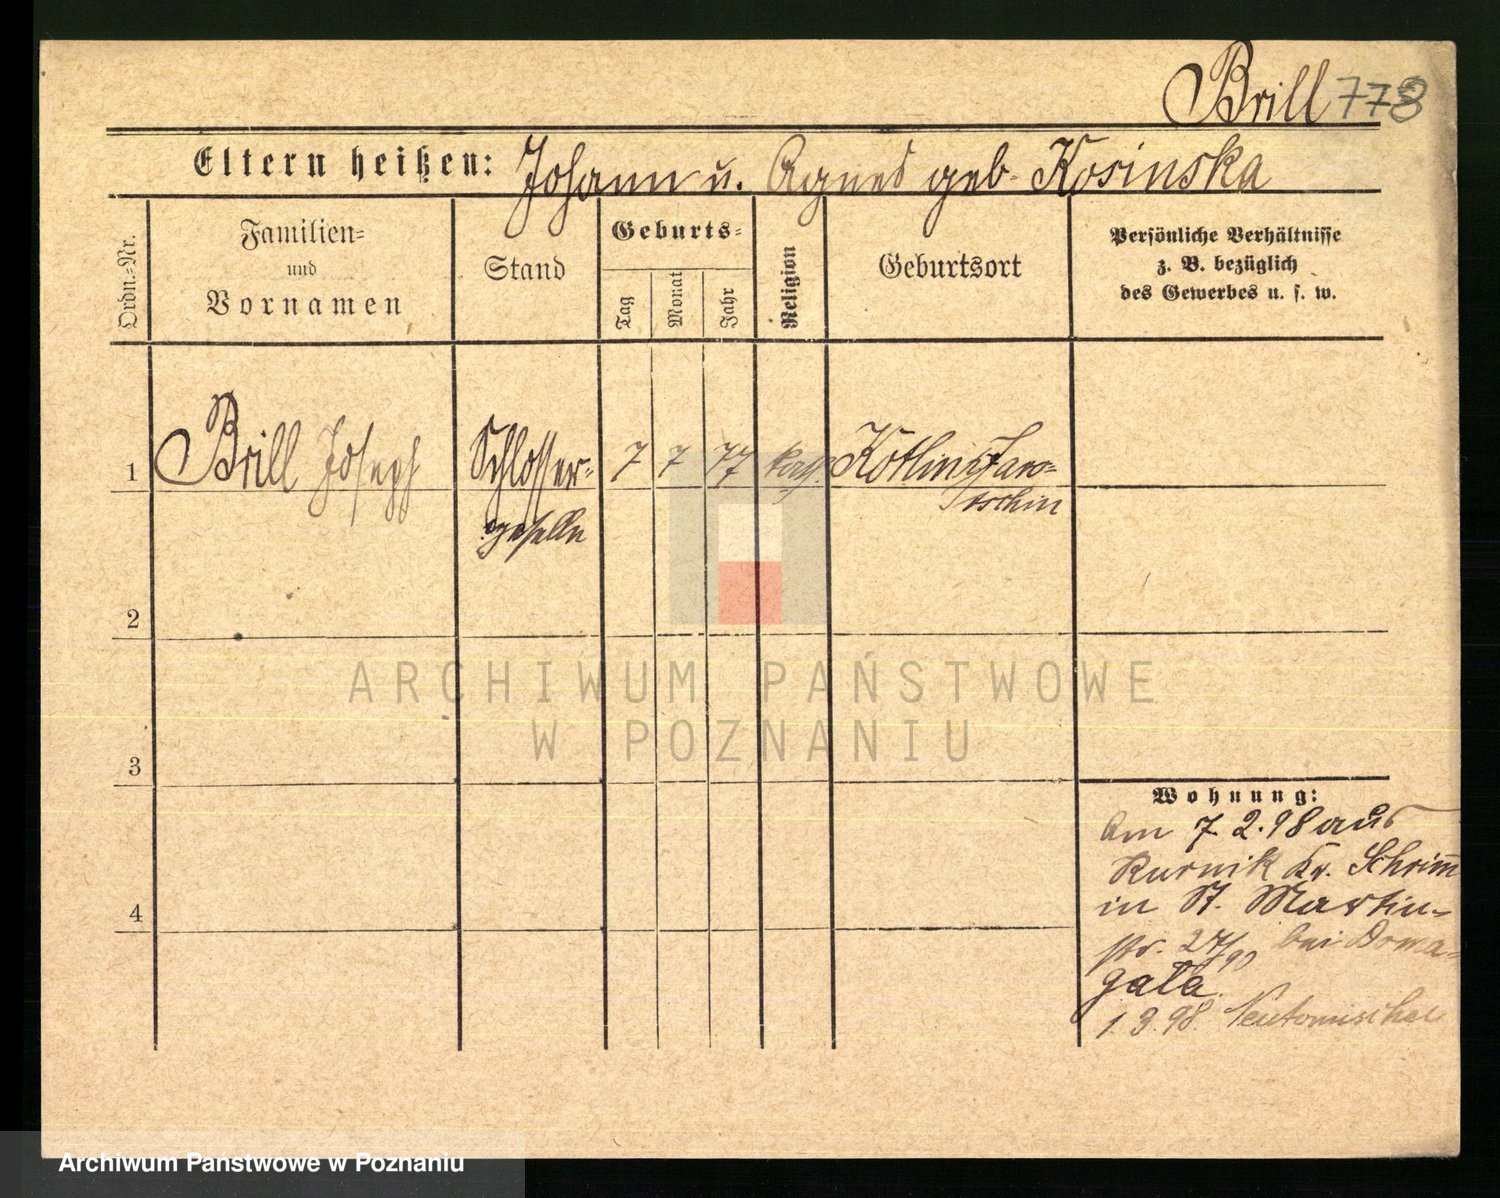 Brill 778
Eltern heißen: Johann u. Agnes geb. Kosinska
Ordn.=Nr.
Familien=
und
Vornamen
Stand
Geburts=
Tag
Monat
Jahr
Religion
Geburtsort
Persönliche Verhältnisse
z. B. bezüglich
des Gewerbes u. s. w.
1 Brill Joseph Schlosser= 7 7 77 kath. Kotlin Jaro=
geselle tschin
2
ARCHIWUM PAŃSTWOWE
W POZNANIU
3
Wohnung:
Am 7. 2. 98 aus
Kurnik Kr. Schrimm
in St. Martin=
4
str. 27/ bei Doma=
gala
1. 3. 98. Neutomischel
Archiwum Państwowe w Poznaniu